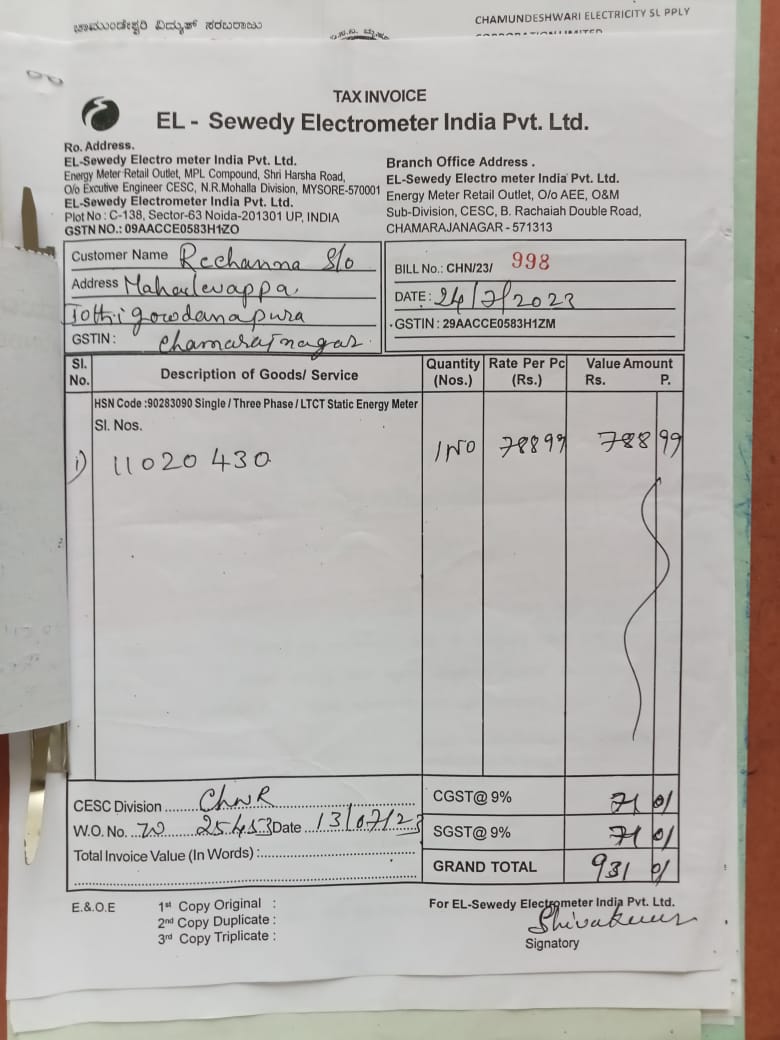 ಚಾಮುಂಡೇಶ್ವರಿ ವಿದ್ಯುತ್ ಸರಬರಾಜು
CHAMUNDESHWARI ELECTRICITY SUPPLY
CORPORATION LIMITED
TAX INVOICE
EL - Sewedy Electrometer India Pvt. Ltd.
Ro. Address.
EL-Sewedy Electro meter India Pvt. Ltd.
Energy Meter Retail Outlet, MPL Compound, Shri Harsha Road,
O/o Excutive Engineer CESC, N.R.Mohalla Division, MYSORE-570001
EL-Sewedy Electrometer India Pvt. Ltd.
Plot No : C-138, Sector-63 Noida-201301 UP, INDIA
GSTN NO.: 09AACCE0583H1ZO
Branch Office Address .
EL-Sewedy Electro meter India Pvt. Ltd.
Energy Meter Retail Outlet, O/o AEE, O&M
Sub-Division, CESC, B. Rachaiah Double Road,
CHAMARAJANAGAR - 571313
Customer Name Rechanna S/o
Address Mahadevappa,
Jothigowdanapura
GSTIN: Chamarajnagar.
BILL No.: CHN/23/ 998
DATE: 24/7/2023
GSTIN : 29AACCE0583H1ZM
Sl. No. Description of Goods/ Service Quantity (Nos.) Rate Per Pc (Rs.) Value Amount Rs. P.
HSN Code :90283090 Single / Three Phase / LTCT Static Energy Meter
Sl. Nos.
1) 11020430 1 No 788 99 788 99
CESC Division ChNR
W.O. No. 25453 Date 13/07/23
Total Invoice Value (In Words) :
CGST@ 9% 71 01
SGST@ 9% 71 01
GRAND TOTAL 931 01
E.& O.E
1st Copy Original :
2nd Copy Duplicate :
3rd Copy Triplicate :
For EL-Sewedy Electrometer India Pvt. Ltd.
Shivakumar
Signatory